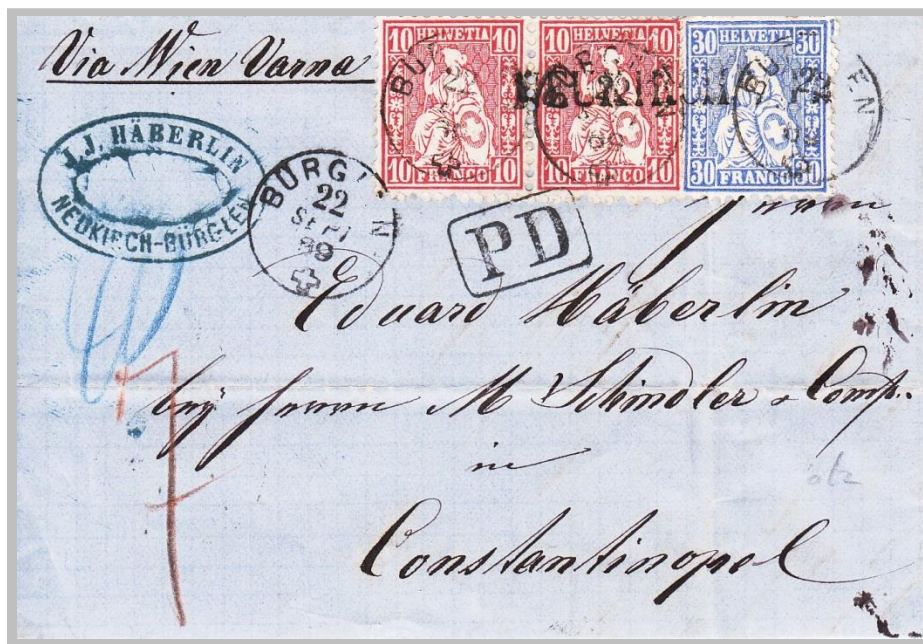 Via Wien Varna
10 HELVETIA 10
10 FRANCO 10
10 HELVETIA 10
10 FRANCO 10
30 HELVETIA 30
30 FRANCO 30
J.J. HÄBERLIN
NEUKIRCH-BÜRGLEN
BÜRGLEN
22
SEPT
69
PD
Herrn
Eduard Häberlin
bey Herren M Schindler & Comp.
in
Constantinopel